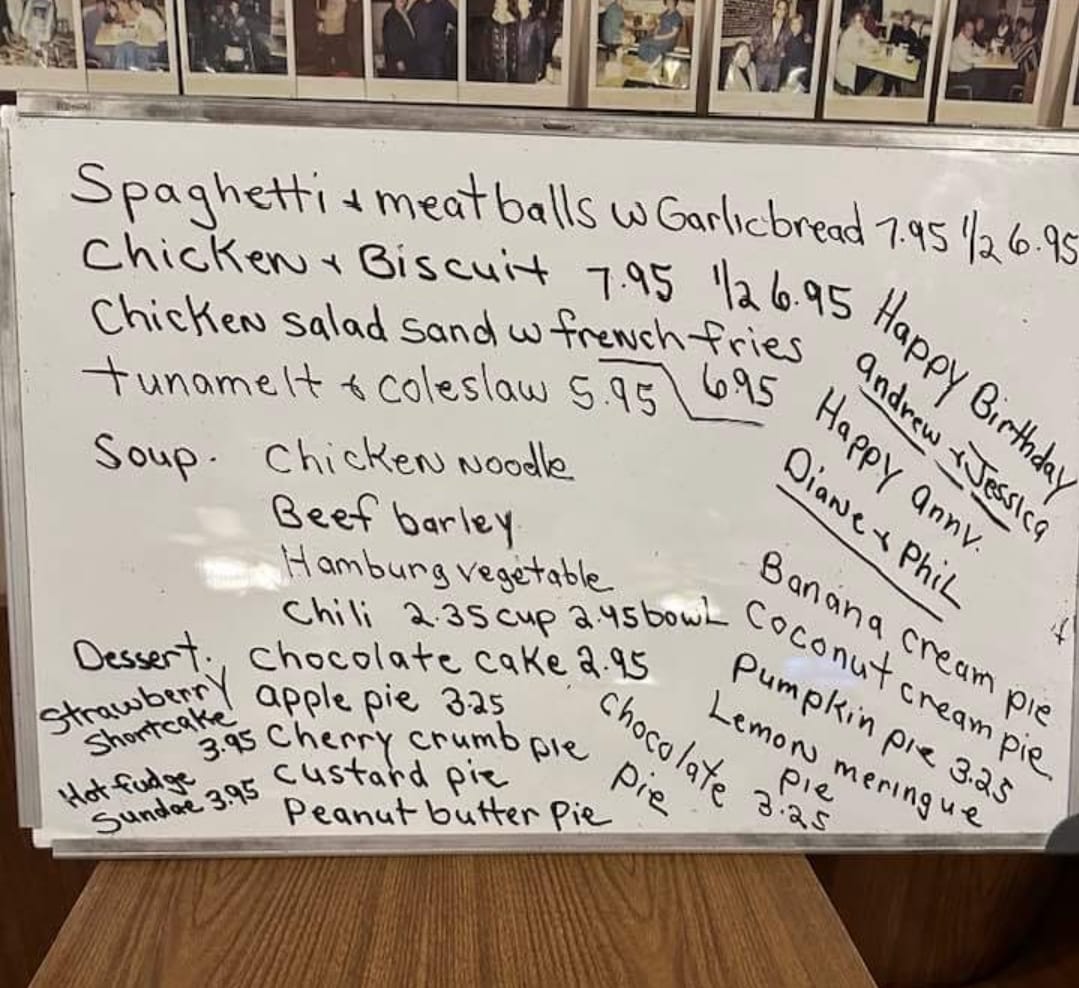 Spaghetti & meatballs w Garlicbread 7.95 1/2 6.95
Chicken & Biscuit 7.95 1/2 6.95
Chicken salad sand w french fries
6.95
tunamelt & coleslaw 5.95
Happy Birthday
andrew & Jessica
Happy annv.
Diane & Phil
Soup. Chicken Noodle
Beef barley
Hamburg vegetable
Chili 2.35 cup 2.45 bowl
Dessert. Chocolate cake 2.95
apple pie 3.25
Cherry crumb pie
custard pie
Peanut butter Pie
Strawberry
Shortcake
3.95
Hot fudge
Sundae 3.95
Chocolate
pie
Banana cream pie
Coconut cream pie
Pumpkin pie 3.25
Lemon meringue
pie
3.25